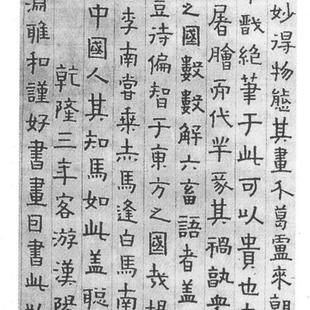 妙得物態其畫不葛盧來朝
戲絕筆于此可以貴也
屠膾而代羊豕其禍孰
之國數數解六畜語者蓋
豈待偏智于東方之國哉
李南嘗乘赤馬逢白馬南
中國人其知馬如此蓋聡
乾隆三年客游漢
淵雅和謹好書畫因書此以